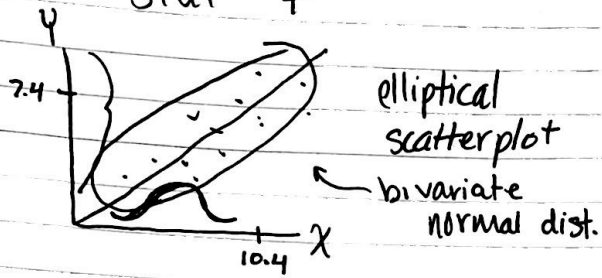 Y
7.4
elliptical
scatterplot
bivariate
normal dist.
10.4
X